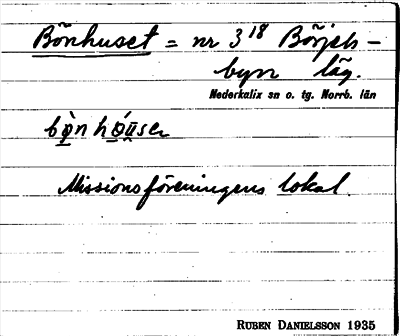 Bönhuset = nr 3¹⁸ Börjels-
byn läg.
Nederkalix sn o. tg. Norrb. län
Missionsföreningens lokal.
RUBEN DANIELSSON 1935